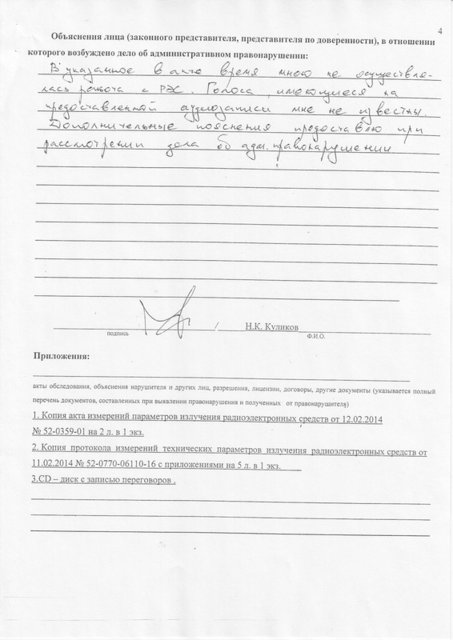 4
Объяснения лица (законного представителя, представителя по доверенности), в отношении
которого возбуждено дело об административном правонарушении:
В указанное в акте время мною не осуществля-
лась работа с РЭС. Голоса имеющиеся на
предоставленной аудиозаписи мне не известны.
Дополнительные пояснения предоставлю при
рассмотрении дела об адм. правонарушении
/ Н.К. Куликов
подпись Ф.И.О.
Приложения:
акты обследования, объяснения нарушителя и других лиц, разрешения, лицензии, договоры, другие документы (указывается полный
перечень документов, составленных при выявлении правонарушения и полученных от правонарушителя)
1. Копия акта измерений параметров излучения радиоэлектронных средств от 12.02.2014
№ 52-0359-01 на 2 л. в 1 экз.
2. Копия протокола измерений технических параметров излучения радиоэлектронных средств от
11.02.2014 № 52-0770-06110-16 с приложениями на 5 л. в 1 экз.
3.CD – диск с записью переговоров .